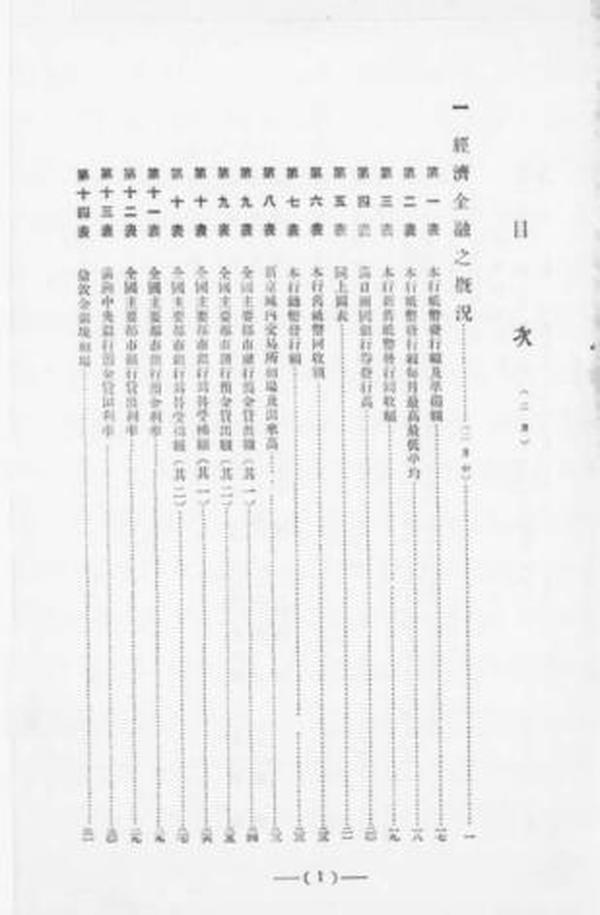 目次（二月）
一 經濟金融之槪況……（二月中）……一
第一表 本行紙幣發行額及準備額……一七
第二表 本行紙幣發行額每月最高最低平均……一八
第三表 本行新舊紙幣發行回收額……一九
第四表 滿日兩國銀行券發行高……二〇
第五表 同上圖表……二一
第六表 本行舊紙幣回收額
第七表 本行鑄幣發行額
第八表 新京城內交易所相場及出來高
第九表 全國主要都市銀行預金貸出額（其一）
第九表 全國主要都市銀行預金貸出額（其二）
第十表 全國主要都市銀行爲替受拂額（其一）
第十表 全國主要都市銀行爲替受拂額（其二）
第十一表 全國主要都市銀行預金利率
第十二表 全國主要都市銀行貸出利率
第十三表 滿洲中央銀行預金貸出利率
第十四表 倫敦金銀塊相場
（1）